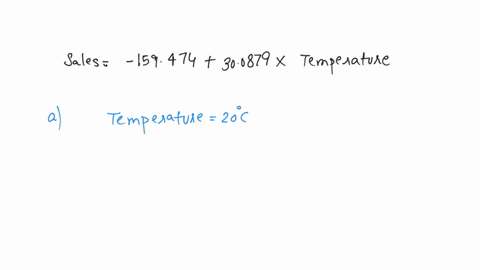 Sales = -159.474 + 30.0879 × Temperature
a) Temperature = 20°C